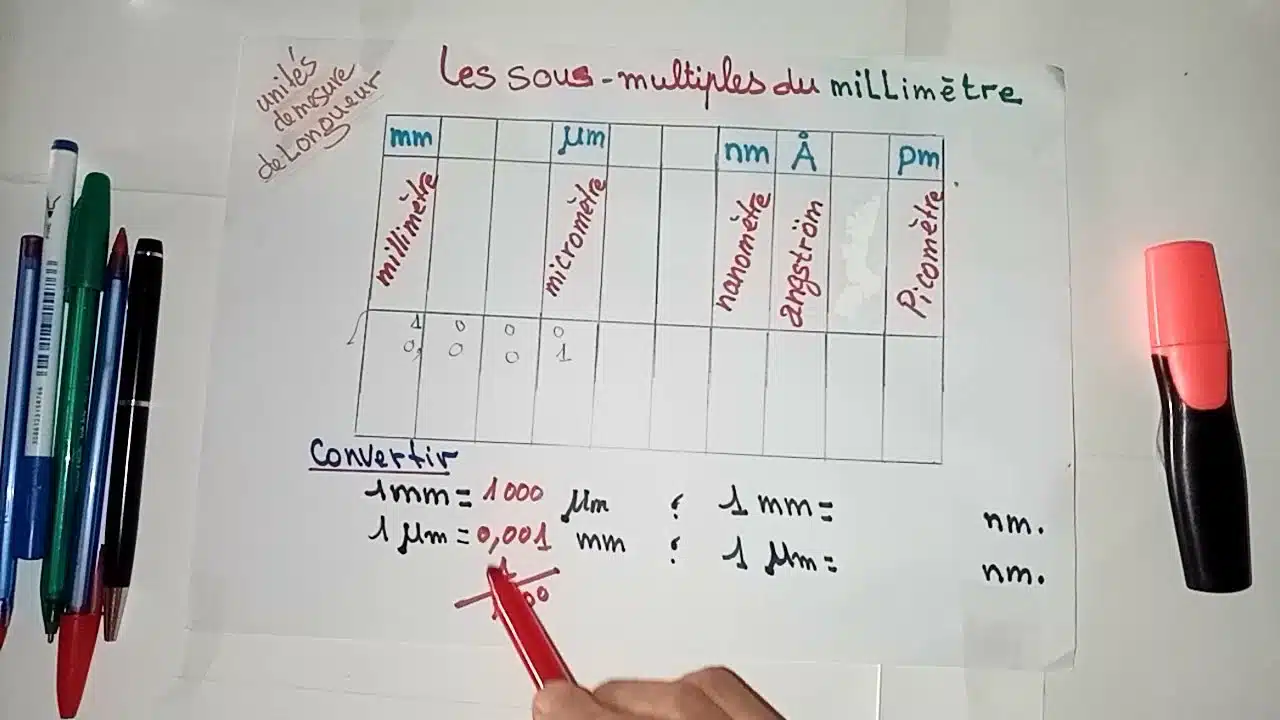 unités
de mesure
de Longueur
Les sous-multiples du millimètre
mm μm nm Å pm
millimètre micromètre nanomètre angström Picomètre
1 0 0 0
0, 0 0 1
Convertir
1mm = 1000 μm ; 1 mm = nm.
1 μm = 0,001 mm ; 1 μm = nm.